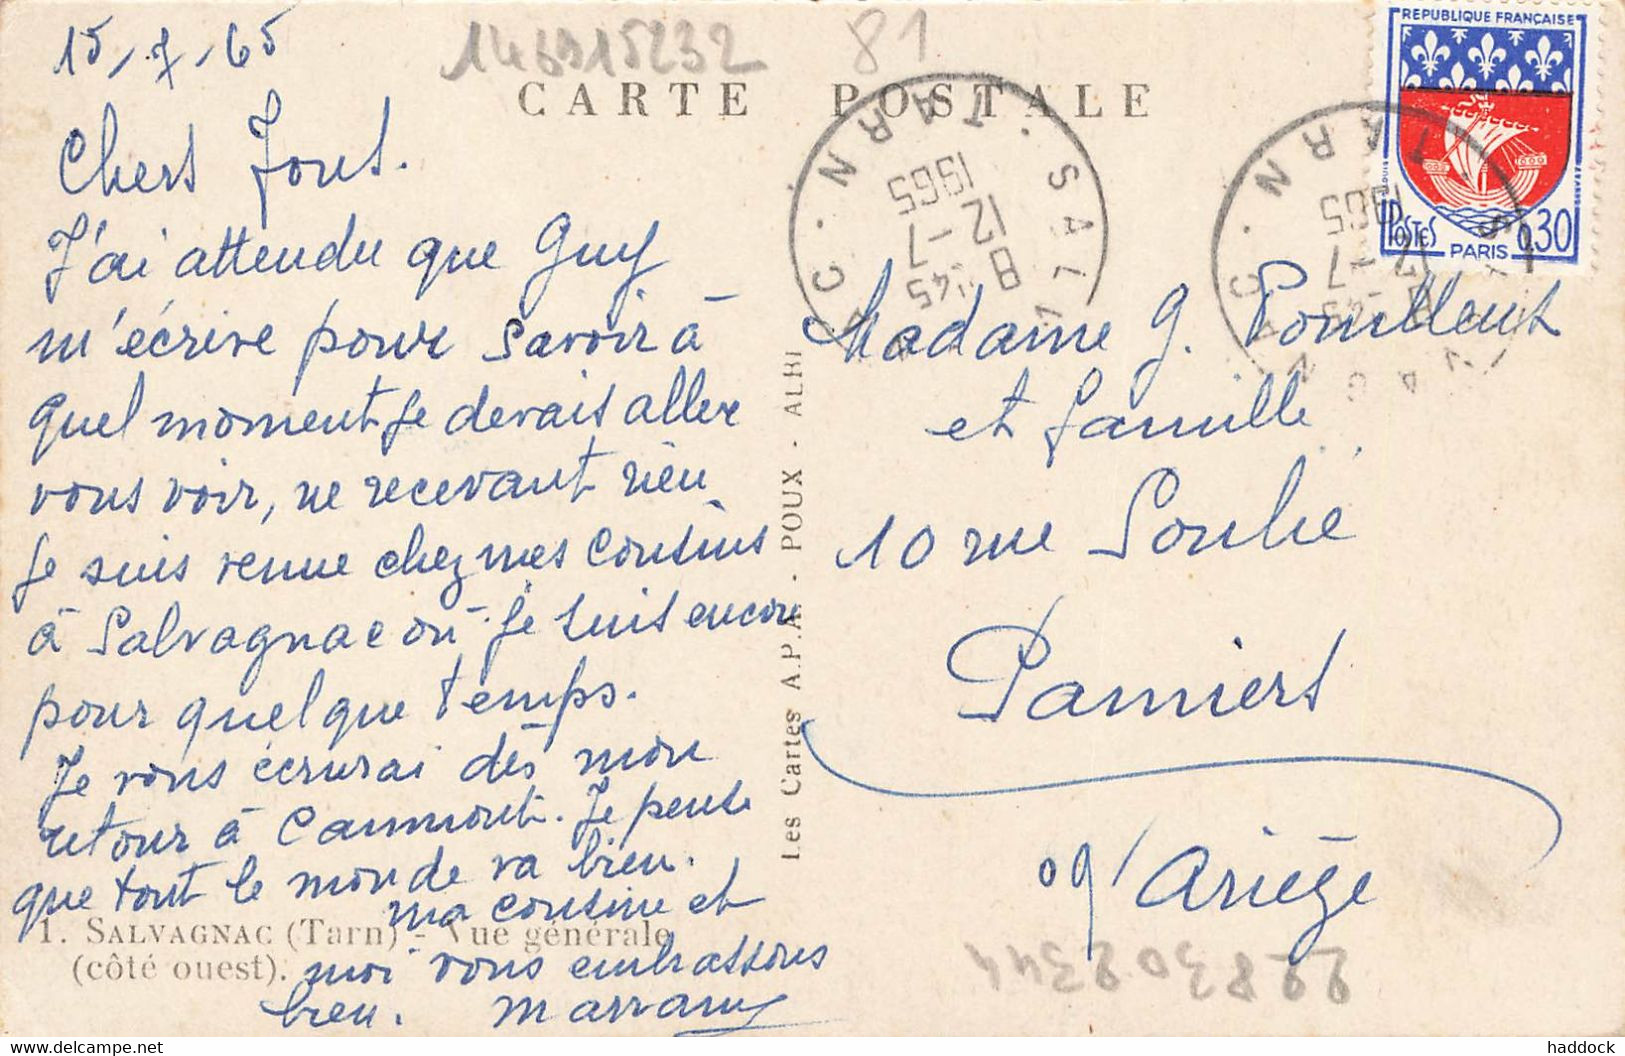 15-7-65
146915232
81
CARTE POSTALE
REPUBLIQUE FRANÇAISE
POSTES
PARIS
0,30
SALVAGNAC . TARN .
8 H45
12 -7
1965
Chers Tous.
J'ai attendu que Guy
m'écrive pour savoir à
quel moment je devais aller
vous voir, ne recevant rien
je suis venue chez mes cousins
à Salvagnac où je suis encore
pour quelque temps.
Je vous écrirai dès mon
retour à Caumont. Je pense
que tout le monde va bien.
ma cousine et
moi vous embrassons
bien.
Les Cartes A.P.A. - POUX - ALBI
Madame G.
et famille
10 rue Soulié
Pamiers
09/ Ariège
1. SALVAGNAC (Tarn) - Vue générale
(côté ouest).
delcampe.net
haddock